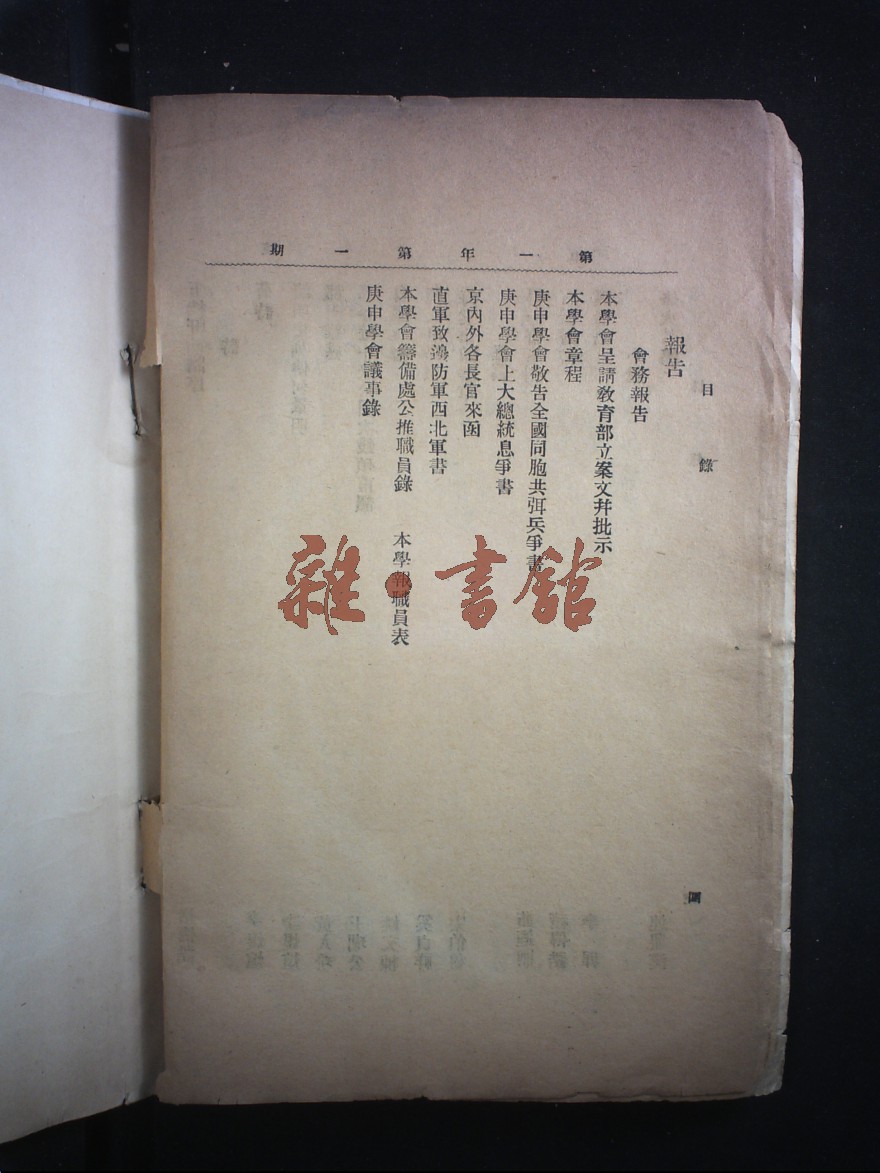 第一年第一期
目錄
四
報告
會務報告
本學會呈請教育部立案文幷批示
本學會章程
庚申學會敬告全國同胞共弭兵爭書
庚申學會上大總統息爭書
京內外各長官來函
直軍致邊防軍西北軍書
本學會籌備處公推職員錄 本學報職員表
庚申學會議事錄
雜·書館